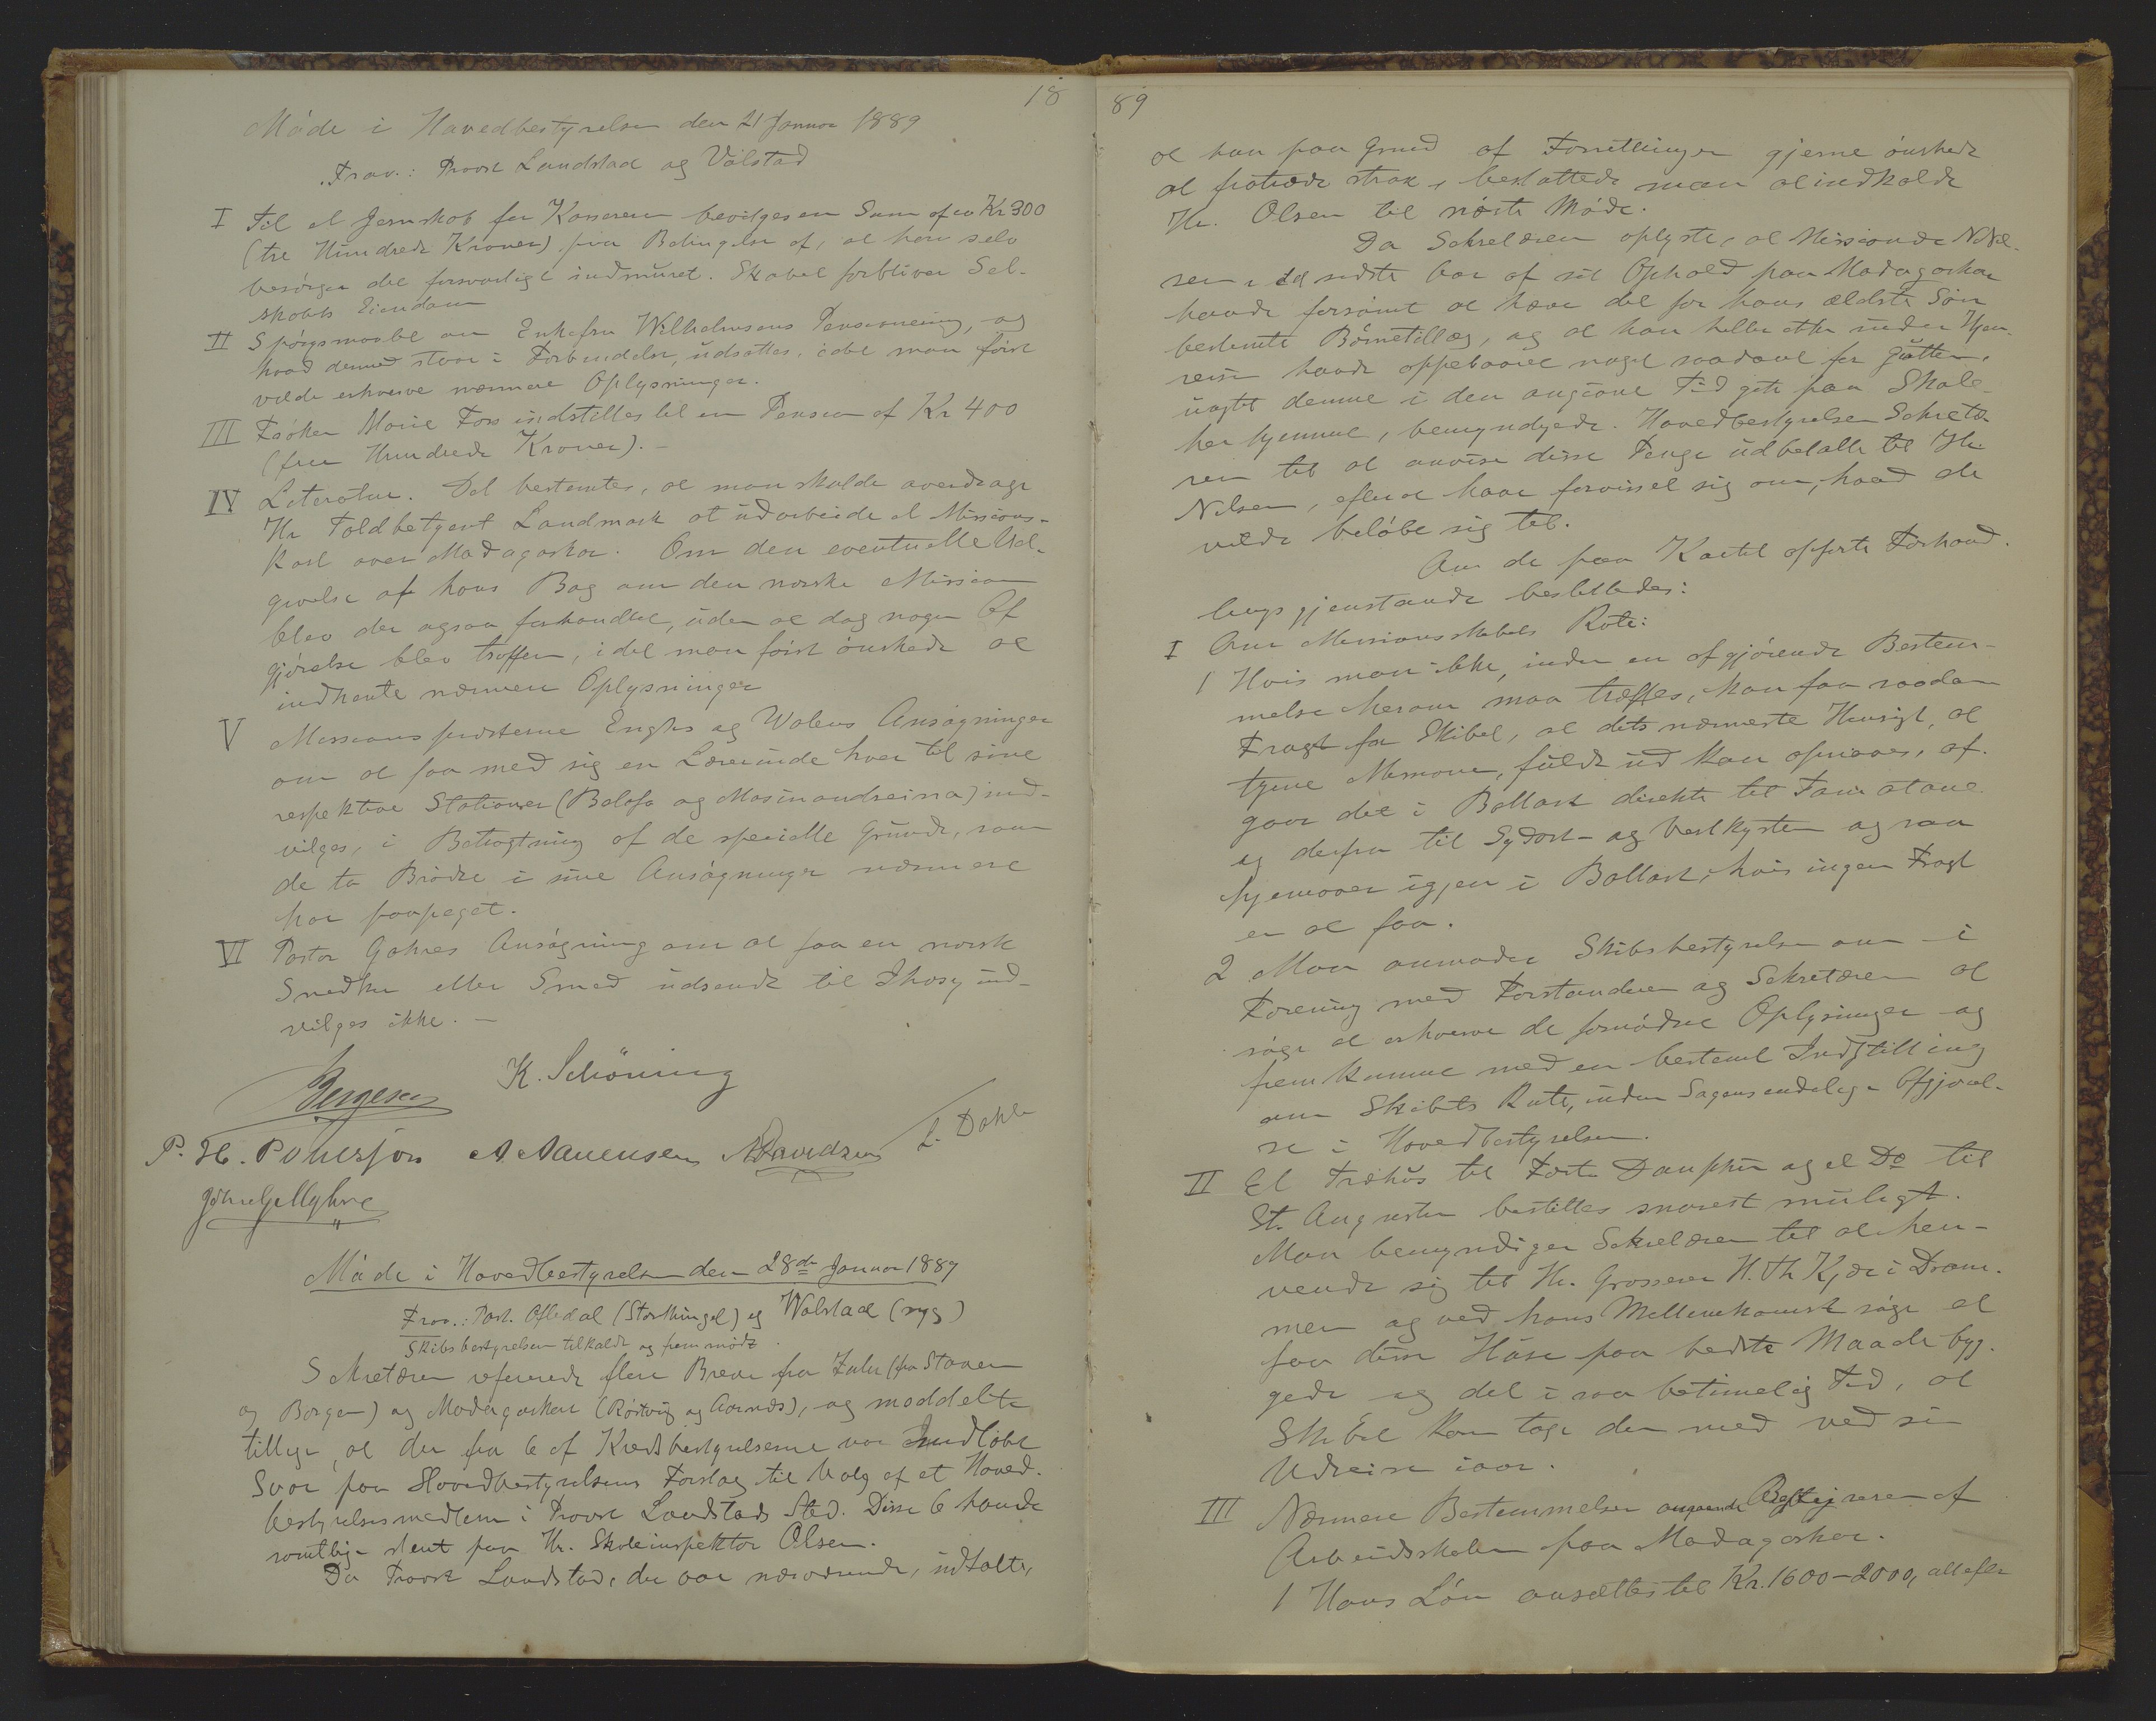 18
Møde i Hovedbestyrelsen den 21 Januar 1889
Frav.: Provst Landstad og Valstad
I Til et Jernskab for Kassereren bevilges en Sum af ca Kr 300
(tre Hundrede Kroner) paa Betingelse af, at han selv
besørger det forsvarligt indmuret. Skabet forbliver Sel-
skabets Eiendom
II Spørgsmaalet om Enkefru Wilhelmsens Pensionering, og
hvad dermed staar i Forbindelse, udsattes, idet man først
vilde erhverve nærmere Oplysninger.
III Frøken Marie Foss indstilles til en Pension af Kr 400
(fire Hundrede Kroner). -
IV Literatur. Det bestemtes, at man skulde overdrage
Hr Toldbetjent Landmark at udarbeide et Missions-
kart over Madagaskar. Om den eventuelle Ud-
givelse af hans Bog om den norske Mission
blev der ogsaa forhandlet, uden at dog nogen Af
gjørelse blev truffen, idet man først ønskede at
indhente nærmere Oplysninger
V Missionspresterne Enghs og Walens Ansøgninger
om at faa med sig en Lærerinde hver til sine
respektive Stationer (Betafo og Masinandreina) ind-
vilges, i Betragtning af de specielle Grunde, som
de to Brødre i sine Ansøgninger nærmere
har paapeget.
VI Pastor Gahres Ansøgning om at faa en norsk
Snedker eller Smed udsendt til Ihosy ind-
vilges ikke. -
Bergesen K. Schöning
P. H. Petersson A Aanensen A Davidsen L. Dahle
Møde i Hovedbestyrelsen den 28de Januar 1889
Frav.: Past. Oftedal (Storthinget) og Walstad (syg)
Skibsbestyrelsen tilkaldt og fremmødt.
Sekretæren refererede flere Breve fra Zulu (fra Staven
og Borgen) og Madagaskar (Röstvig og Aarnes), og meddelte
tillige, at der fra 6 af Kredsbestyrelserne var Indløbet
Svar paa Hovedbestyrelsens Forslag til Valg af et Hoved-
bestyrelsesmedlem i Provst Landstads Sted. Disse 6 havde
samtlige stemt paa Hr. Skoleinspektør Olsen.
Da Provst Landstad, der var nærværende, udtalte,
89
at han paa Grund af Forretninger gjerne ønskede
at fratræde strax, besluttede man at indkalde
Hr. Olsen til næste Møde.
Da Sekretæren oplyste, at Missionær N. Niel-
sen i det sidste Aar af sit Ophold paa Madagaskar
havde forsømt at hæve det for hans ældste Søn
bestemte Børnetillæg, og at han heller ikke under Hjem-
reisen havde oppebaaret noget saadant for Gutten,
uagtet denne i den angivne Tid gik paa Skole
her hjemme, bemyndigede Hovedbestyrelsen Sekretæ-
ren til at anvise disse Penge udbetalte til Hr.
Nilsen, efterat have forvisset sig om, hvad de
vilde beløbe sig til.
Om de paa Kartet opførte Forhand-
lingsgjenstande besluttedes:
I Om Missionsskibets Rute:
1 Hvis man ikke, inden en afgjørende Bestem-
melse herom maa træffes, kan faa saadan
Fragt for Skibet, at dets nærmeste Hensigt, at
tjene Missionen, fuldt ud kan opnaaes, af-
gaar det i Ballast direkte til Tamatave
og derfra til Sydost- og Vestkysten og saa
hjemover igjen i Ballast, hvis ingen Fragt
er at faa.
2 Man anmoder Skibsbestyrelsen om - i
Forening med Forstanderen og Sekretæren at
søge at erhverve de fornødne Oplysninger og
fremkomme med en bestemt Indstilling
om Skibets Rute, inden Sagens endelige Afgjørel-
se i Hovedbestyrelsen.
II Et Træhus til Fort Dauphin og et Do til
St. Augustin bestilles snarest muligt.
Man bemyndiger Sekretæren til at hen-
vende sig til Hr. Grosserer H. Th Kjær i Dram-
men og ved hans Mellemkomst søge at
faa disse Huse paa bedste Maade byg-
gede og det i saa betimelig Tid, at
Skibet kan tage dem med ved sin
Udreise iaar.
III Nærmere Bestemmelser angaaende Bestyreren af
Arbeidsskolen paa Madagaskar.
1 Hans Løn ansættes til Kr. 1600-2000, alt efter